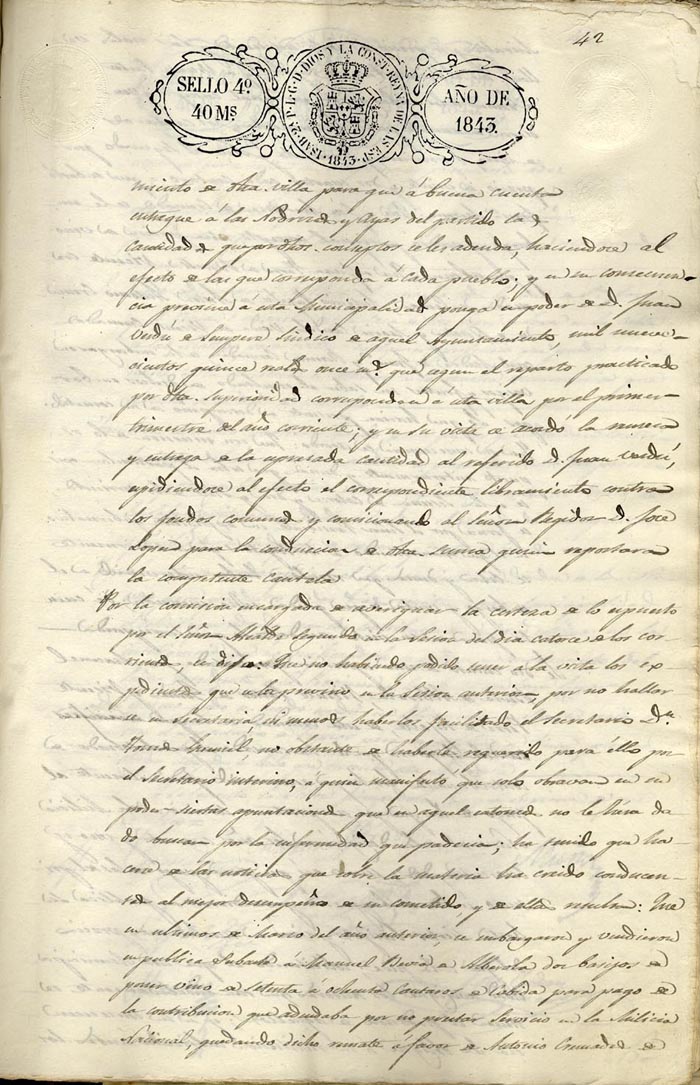 42
SELLO 4º
40 Ms
ISAB. 2ª P. L. G. D. DIOS Y LA CONST. REYNA DE LAS ESP. 1843.
AÑO DE
1843.
miento de dha. villa para que á buena cuenta
entregue á las Nodrizas y Ayas del partido la
cantidad que por dhos. conceptos se les adeuda, haciendose al
efecto de las que corresponda á cada pueblo; y en su consecuen-
cia previene á esta Municipalidad ponga en poder de D. Juan
Verdú de Sempere Sindico de aquel Ayuntamiento mil nueve-
cientos quince rs. once ms. que segun el reparto practicado
por dha. Superioridad corresponden á esta villa por el primer
trimestre del año corriente; y en su vista se acordó la
y entrega de la expresada cantidad al referido D. Juan Verdú,
expidiendose al efecto el correspondiente libramiento contra
los fondos comunes y comicionando al Señor Regidor D. José
Lopez para la conducion de dha. suma quien reportara
la competente cautela
Por la comision encargada de averiguar la certeza de lo espuesto
por el Señor Alcalde segundo en la Sesion del dia catorce de los cor-
rientes, se dijo: Que no habiendo podido tener a la vista los ex-
pedientes que se la previno en la Sesion anterior, por no hallar
se en Secretaría ni menos haberlos facilitado el Secretario Dn.
no obstante de haberle requerido para ello por
el Secretario interino, á quien manifestó que solo obravan en su
poder ciertas apuntaciones que en aquel entonces no le era da-
do buscar por la enfermedad que padecia; ha tenido que ha-
cerse de las noticias que sobre la materia ha creido conducen-
tes al mejor desempeño de su cometido, y de ellas resulta: Que
en ultimos de Marzo del año anterior, se embargaron y vendieron
en publica Subasta á Manuel Beviá de Alberola dos basijos de
poner vino de setenta á ochenta cantaros de cabida para pago de
la contribucion que adeudaba por no prestar Servicio en la Milicia
Nacional, quedando dicho remate á favor de Antonio de